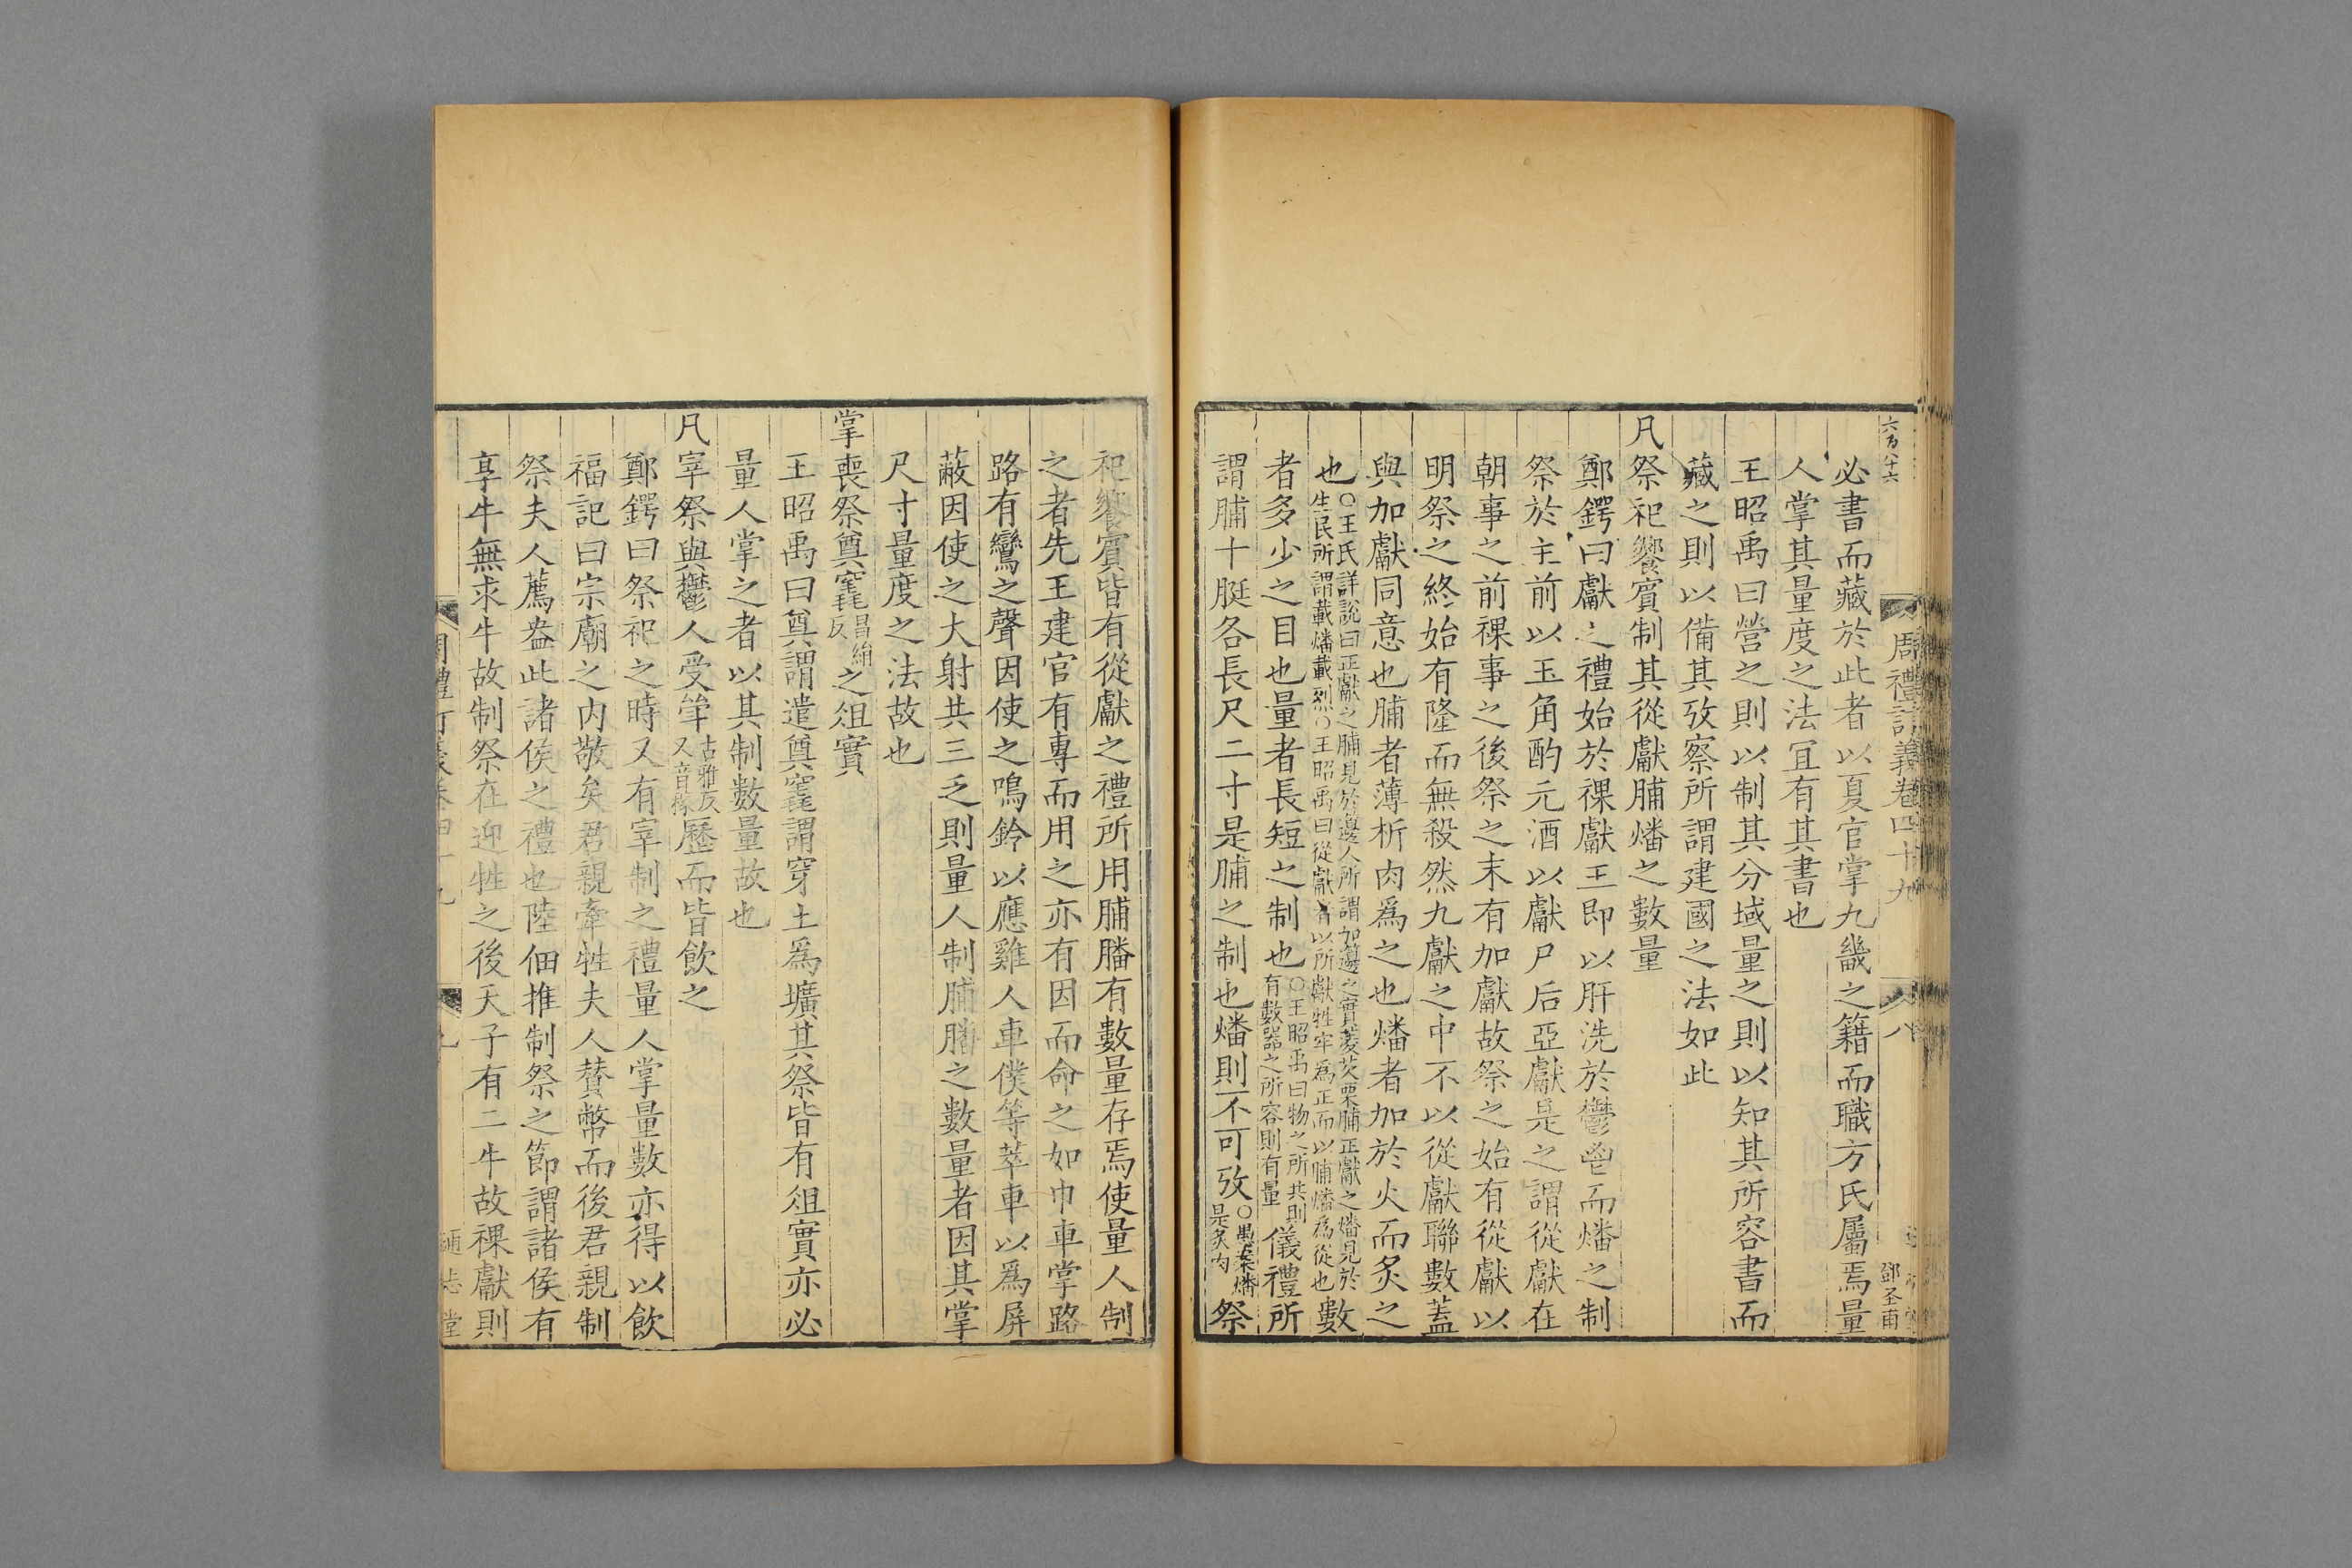 六百八十六
周禮訂義卷四十九
八
鄧圣甫
必書而藏於此者以夏官掌九畿之籍而職方氏屬焉量
人掌其量度之法冝有其書也
王昭禹曰營之則以制其分域量之則以知其所容書而
藏之則以備其攷察所謂建國之法如此
凡祭祀饗賓制其從獻脯燔之數量
鄭鍔曰獻之禮始於祼獻王即以肝洗於鬱鬯而燔之制
祭於主前以玉角酌元酒以獻尸后亞獻是之謂從獻在
朝事之前祼事之後祭之末有加獻故祭之始有從獻以
明祭之終始有隆而無殺然九獻之中不以從獻聯數蓋
與加獻同意也脯者薄析肉爲之也燔者加於火而炙之
也○王氏詳說曰正獻之脯見於籩人所謂加籩之實菱芡栗脯正獻之燔見於
生民所謂載燔載烈○王昭禹曰從獻者以所獻牲牢爲正而以脯燔爲從也數
者多少之目也量者長短之制也○王昭禹曰物之所共則
有數器之所容則有量儀禮所
謂脯十脡各長尺二寸是脯之制也燔則不可攷○愚案燔
是炙肉祭
祀饗賓皆有從獻之禮所用脯膰有數量存焉使量人制
之者先王建官有專而用之亦有因而命之如巾車掌路
路有鸞之聲因使之鳴鈴以應雞人車僕等萃車以爲屏
蔽因使之大射共三乏則量人制脯膰之數量者因其掌
尺寸量度之法故也
掌喪祭奠竁昌絹
反之俎實
王昭禹曰奠謂遣奠竁謂穿土爲壙其祭皆有俎實亦必
量人掌之者以其制數量故也
凡宰祭與鬱人受斝古雅反
又音稼歷而皆飲之
鄭鍔曰祭祀之時又有宰制之禮量人掌量數亦得以飲
福記曰宗廟之内敬矣君親牽牲夫人贊幣而後君親制
祭夫人薦盎此諸侯之禮也陸佃推制祭之節謂諸侯有
享牛無求牛故制祭在迎牲之後天子有二牛故祼獻則
周禮訂義卷四十九
九
通志堂